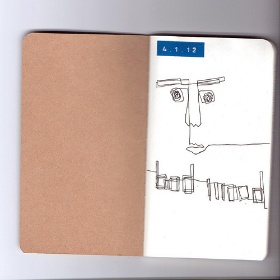 4.1.12
bad mood